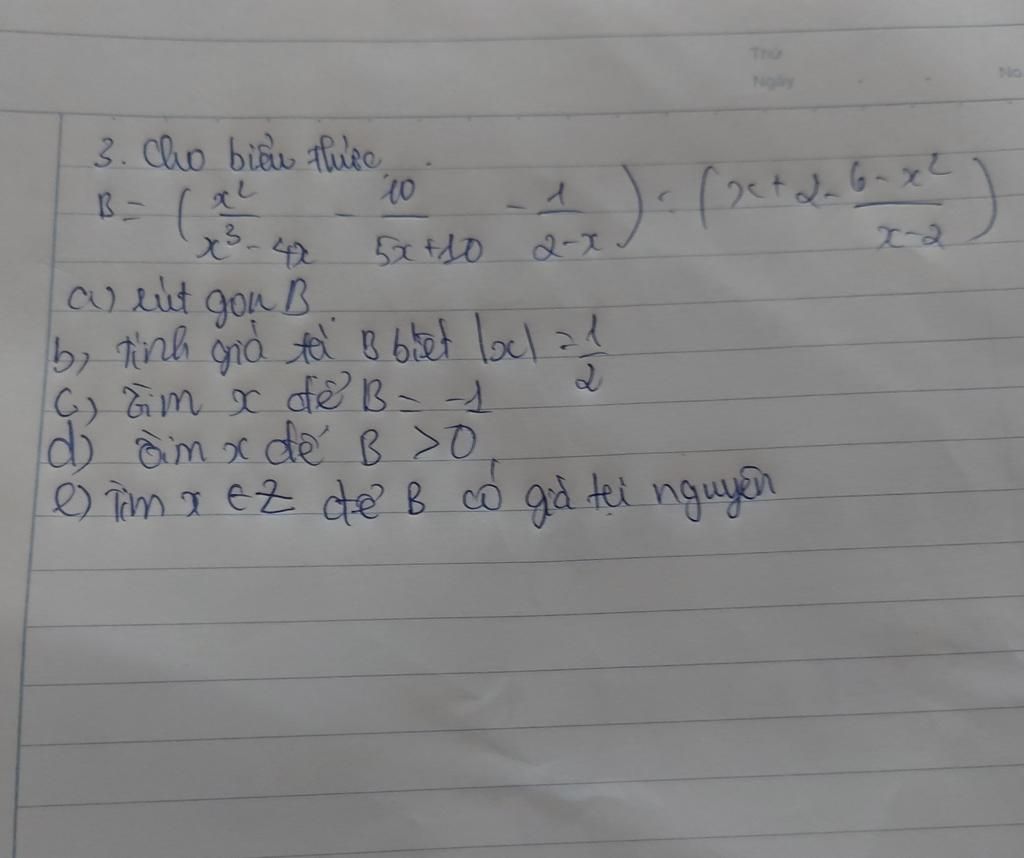 Thứ
Ngày
No
3. Cho biểu thức
B = (x²/(x³-4x) - 10/(5x+10) - 1/(2-x)) : (x+2 - (6-x²)/(x-2))
a) rút gọn B.
b, tính giá trị B biết |x| = 1/2
c, Tìm x để B = -1
d) Tìm x để B > 0
e) Tìm x ∈ Z để B có giá trị nguyên